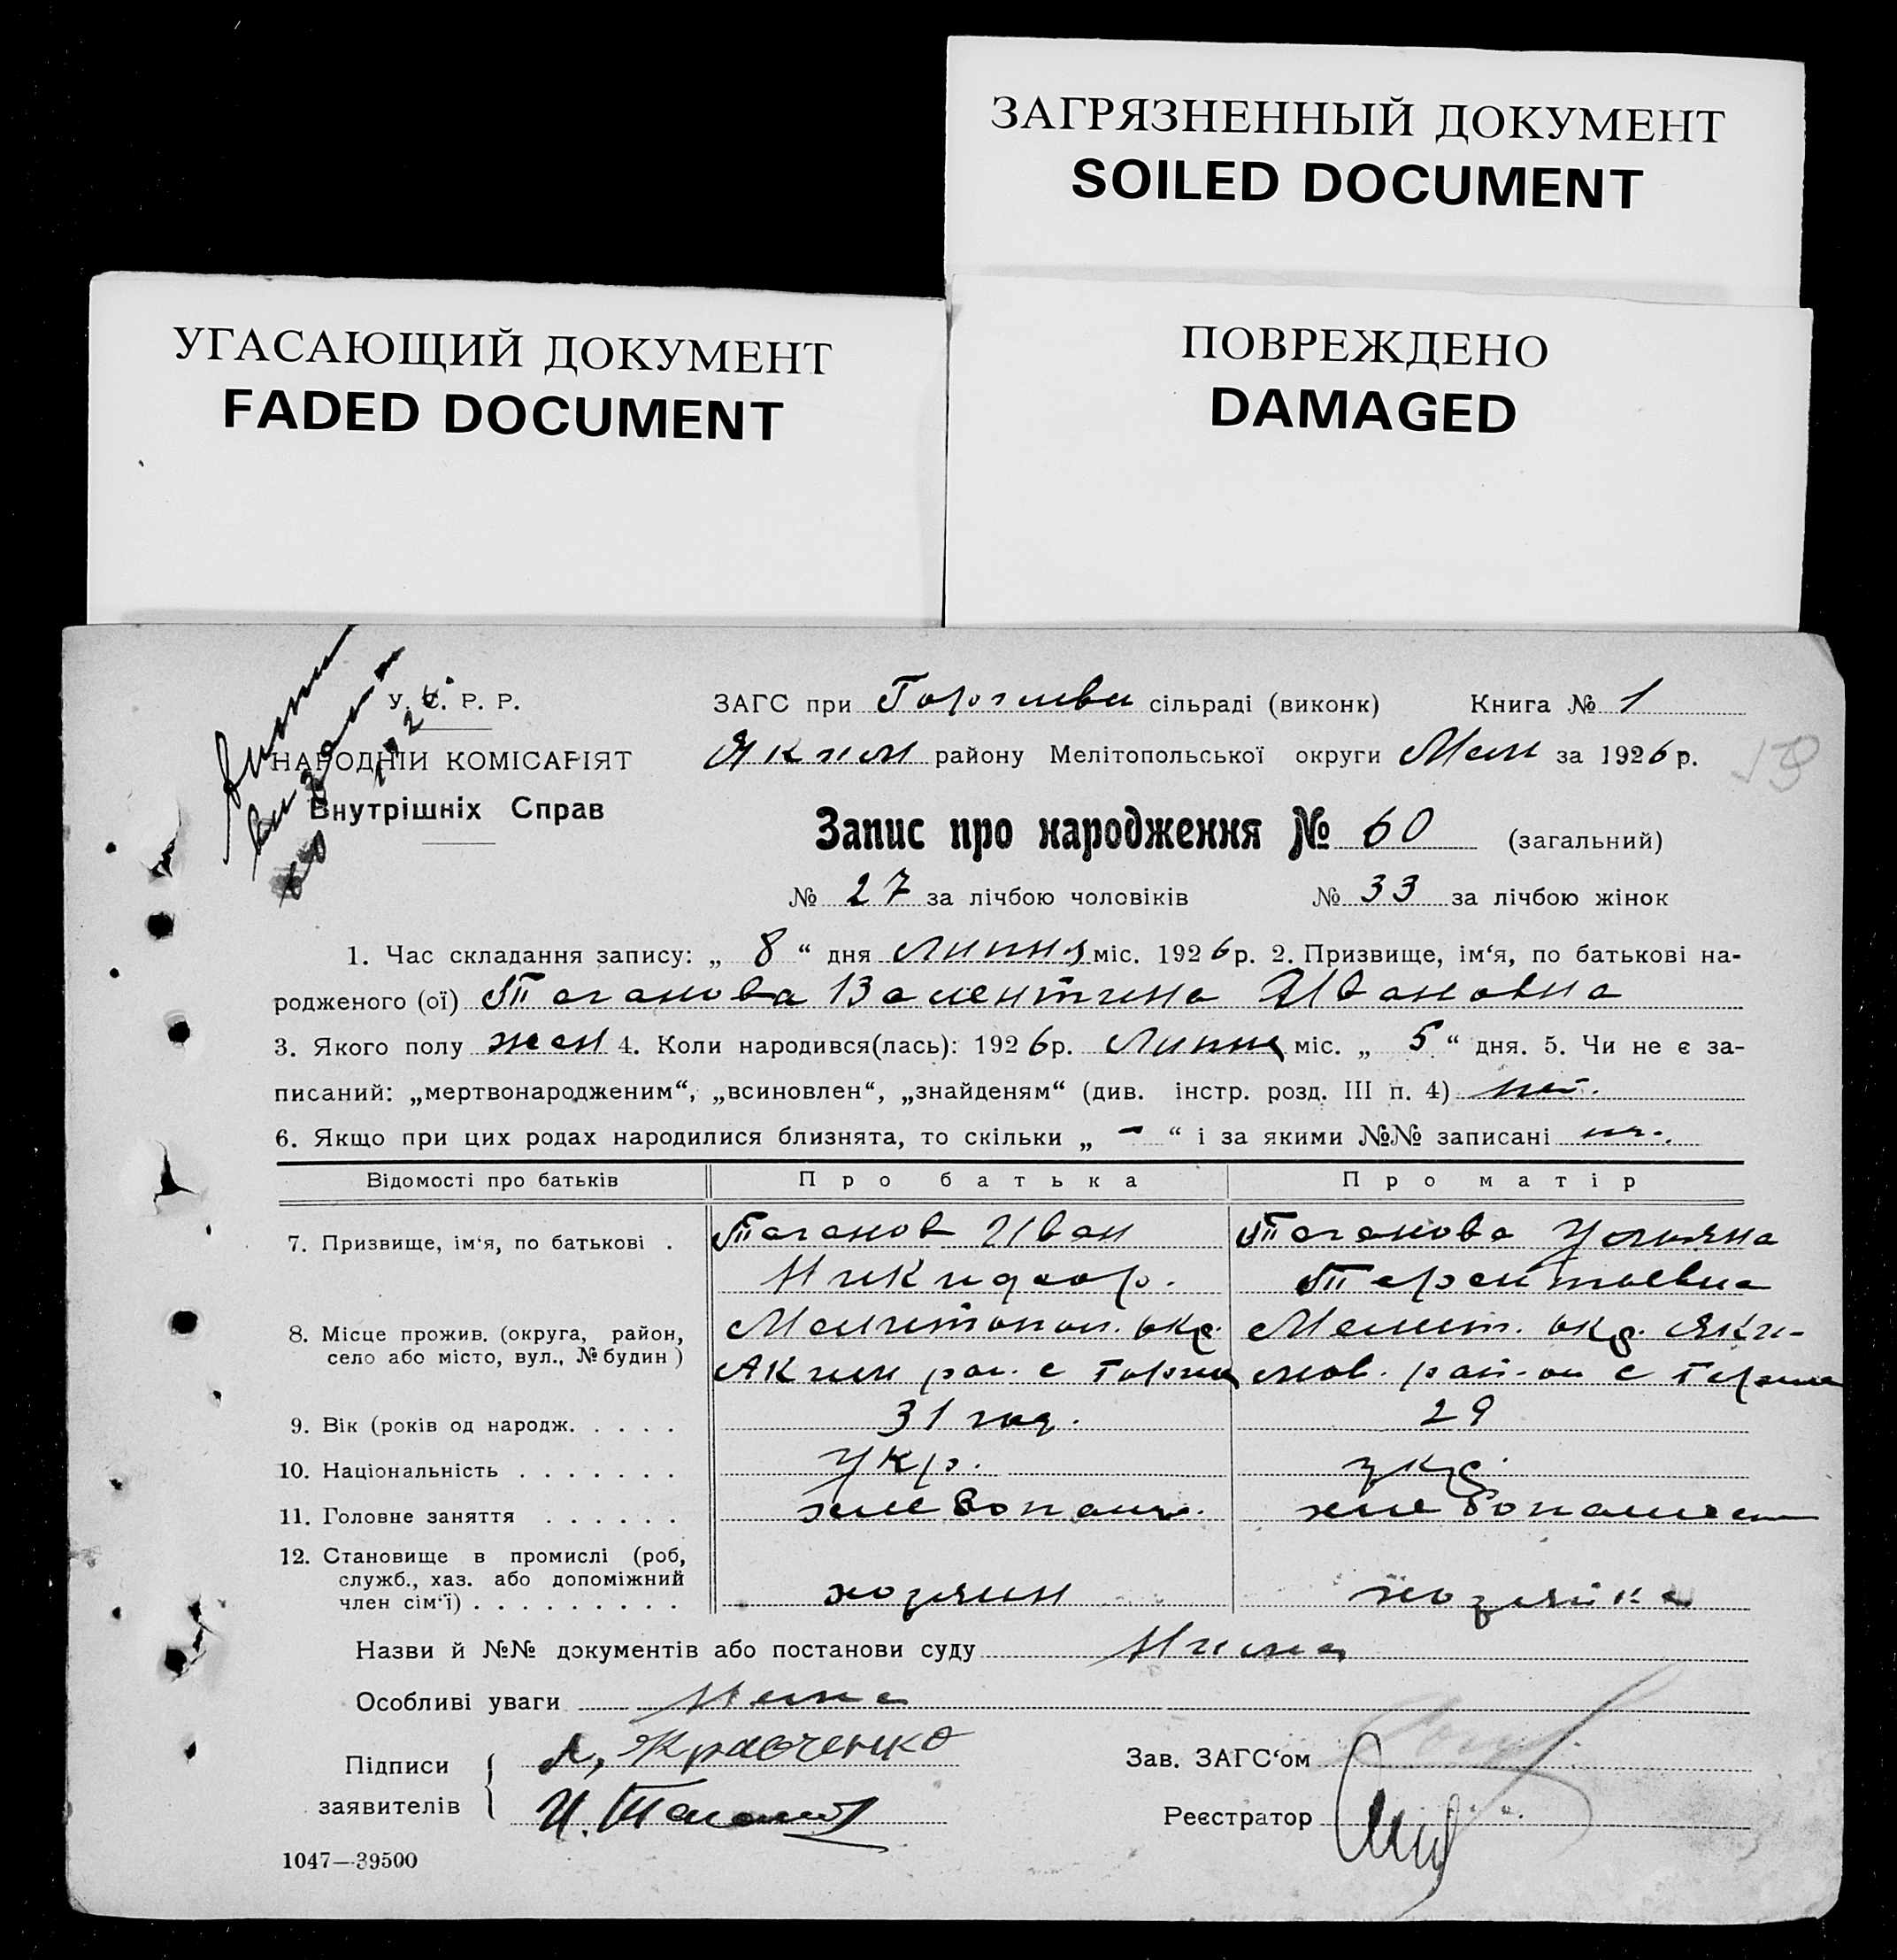 ЗАГРЯЗНЕННЫЙ ДОКУМЕНТ
SOILED DOCUMENT
УГАСАЮЩИЙ ДОКУМЕНТ
FADED DOCUMENT
ПОВРЕЖДЕНО
DAMAGED
У. С. Р. Р.
НАРОДНІЙ КОМІСАРІЯТ
Внутрішніх Справ
ЗАГС при сільраді (виконк) Книга № 1
Яким району Мелітопольської округи Мел за 1926 р.
Запис про народження № 60 (загальний)
№ 27 за лічбою чоловіків № 33 за лічбою жінок
1. Час складання запису: „ 8 “ дня Липня міс. 1926 р. 2. Призвище, ім‘я, по батькові на-
родженого (ої) Таганова Валентина Ивановна
3. Якого полу жен 4. Коли народився(лась): 1926 р. Липня міс. „ 5 “ дня. 5. Чи не є за-
писаний: „мертвонародженим“, „всиновлен“, „знайденям“ (див. інстр. розд. III п. 4) нет.
6. Якщо при цих родах народилися близнята, то скільки „ - “ і за якими №№ записані
Відомості про батьків Про батька Про матір
7. Призвище, ім‘я, по батькові . Таганов Иван Таганова Ульяна
Никидфор. Терентьевна
8. Місце прожив. (округа, район, Мелитопол. окр. Мелит. окр. Яки-
село або місто, вул., № будин ) Аким рай. с мов. рай-он с
9. Вік (років од народж. . . . . 31 год. 29
10. Національність . . . . . . . Укр. укр.
11. Головне заняття . . . . . . хлебопаш. хлебопашест
12. Становище в промислі (роб,
служб., хаз. або допоміжний
член сім‘ї) . . . . . . . . . хозяин хозяйка
Назви й №№ документів або постанови суду Нима
Особливі уваги Нема
Підписи
заявителів
А, Кравченко
И. Таганов
Зав. ЗАГС‘ом
Реєстратор
1047—39500